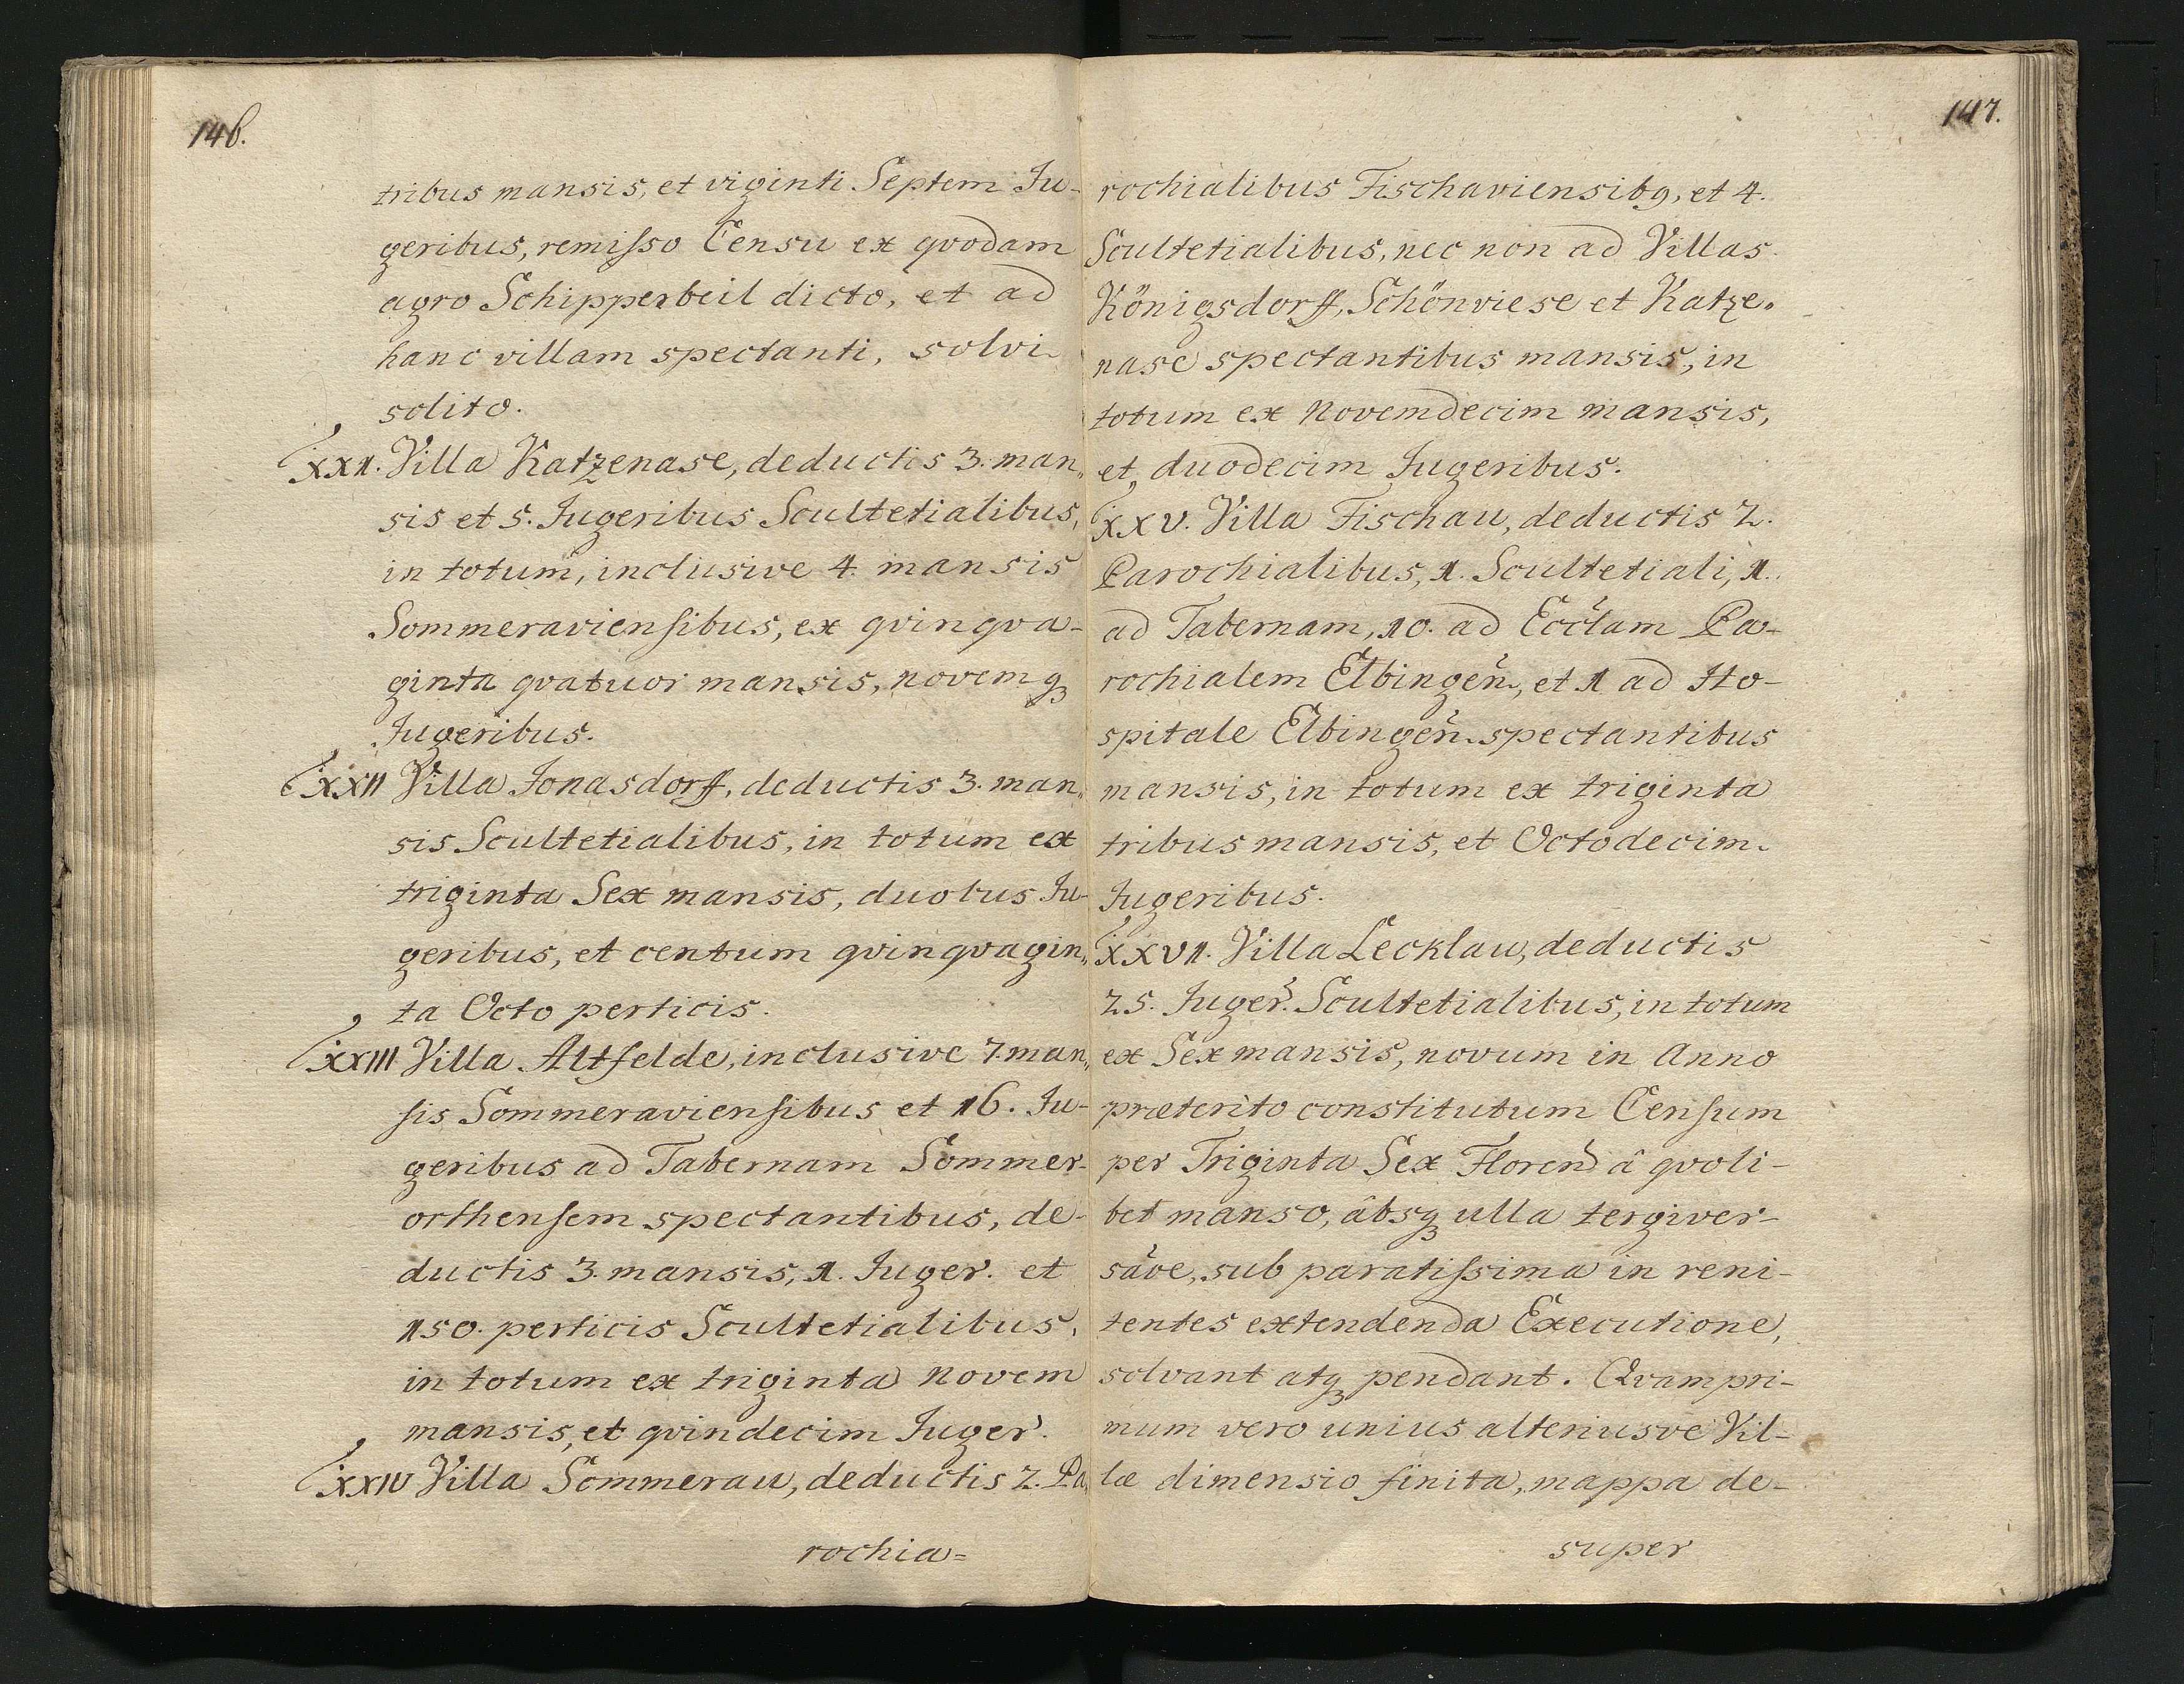 146.
tribus mansis, et viginti Septem Ju-
geribus, remiſso Censu ex qvodam
agro Schipperbeil dicto, et ad
hanc villam spectanti, solvi
solito.
XXI. Villa Katzenase, deductis 3. man„
sis et 5. Jugeribus Scultetialibus,
in totum, inclusive 4 mansis
Sommeravienſibus, ex qvinqva-
ginta qvatuor mansis, novemqꝫ
Jugeribus.
XXII Villa Jonasdorff, deductis 3. man„
sis Scultetialibus, in totum ex
triginta Sex mansis, duobus Ju-
geribus, et centum qvinqvagin„
ta Octo perticis.
XXIII Villa Altfelde, inclusive 7. man„
ſis Sommeravienſibus et 16. Ju-
geribus ad Tabernam Sommer-
orthenſem spectantibus, de-
ductis 3. mansis, 1. Juger. et
150. perticis Scultetialibus,
in totum ex triginta novem
mansis, et qvindecim Juger.
XXIV Villa Sommerau, deductis 2. Pa„
rochia=
147.
rochialibus Fischaviensibꝰ, et 4.
Scultetialibus, nec non ad Villas
Königsdorff, Schönviese et Katze„
nase spectantibus mansis, in
totum ex Novemdecim mansis,
et duodecim Jugeribus.
XXV. Villa Fischau, deductis 2.
Parochialibus, 1. Scultetiali, 1.
ad Tabernam, 10. ad Eccl̃am Pa-
rochialem Elbingeñ, et 1 ad Ho-
spitale Elbingeñ spectantibus
mansis, in totum ex triginta
tribus mansis, et Octodecim
Jugeribus.
XXVI. Villa Lecklau, deductis
25. Juger. Scultetialibus, in totum
ex Sex mansis, novum in Anno
præterito constitutum Cenſum
per Triginta Sex Floren̄ â qvoli-
bet manso, âbsqꝫ ulla tergiver-
sãve, sub paratiſsima in reni-
tentes extendenda Executione,
solvant atqꝫ pendant. Qvampri-
mum vero unius alteriusve Vil-
læ dimensio finita, mappa de-
super